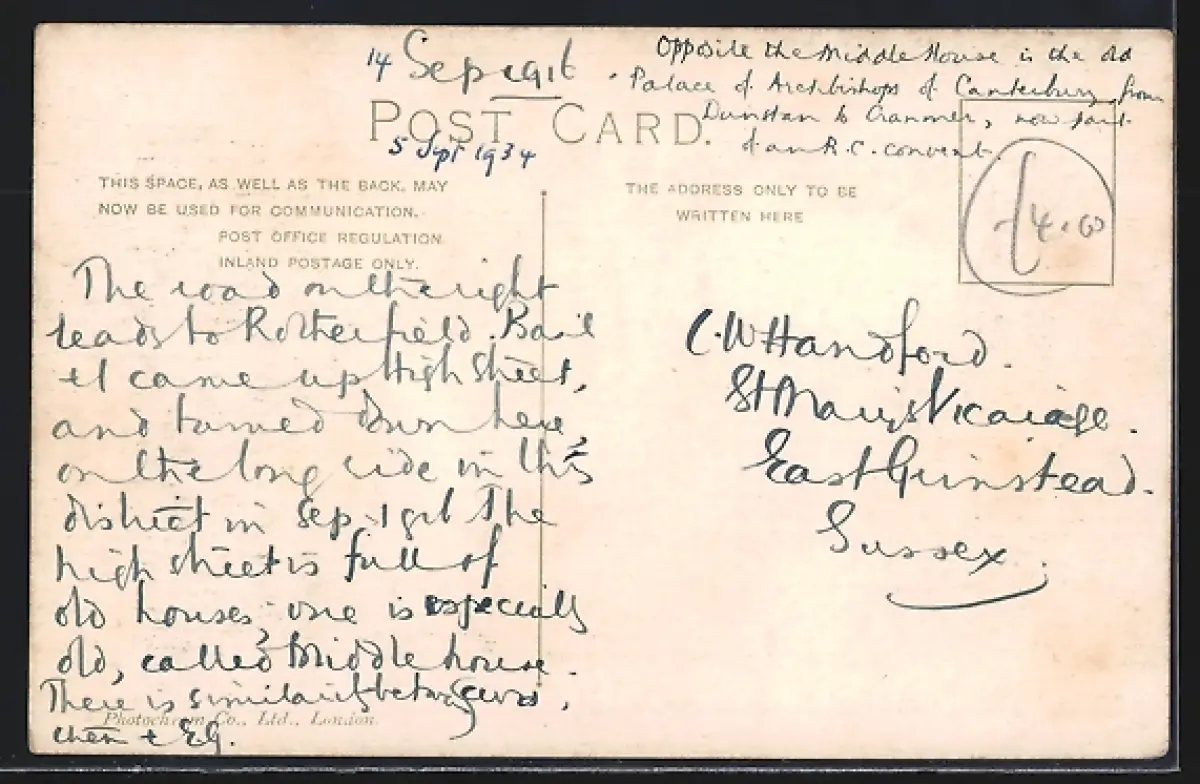 14 Sep 1916
Opposite the Middle House is the old
Palace of Archbishops of Canterbury from
Dunstan to Cranmer, now part
of an R.C. convent.
POST CARD.
5 Sept 1934
THIS SPACE, AS WELL AS THE BACK, MAY
NOW BE USED FOR COMMUNICATION.
POST OFFICE REGULATION.
INLAND POSTAGE ONLY.
THE ADDRESS ONLY TO BE
WRITTEN HERE
The road on the right
leads to Rotherfield. Basil
& I came up High Street,
and turned down here,
on the long ride in this
district in Sep. 1916 The
high street is full of
old houses, one is especially
old, called Middle house.
There is similarity between
them & E.G.
Photochrom Co., Ltd., London.
C. W Handford.
St Mary's Vicarage.
East Grinstead.
Sussex.